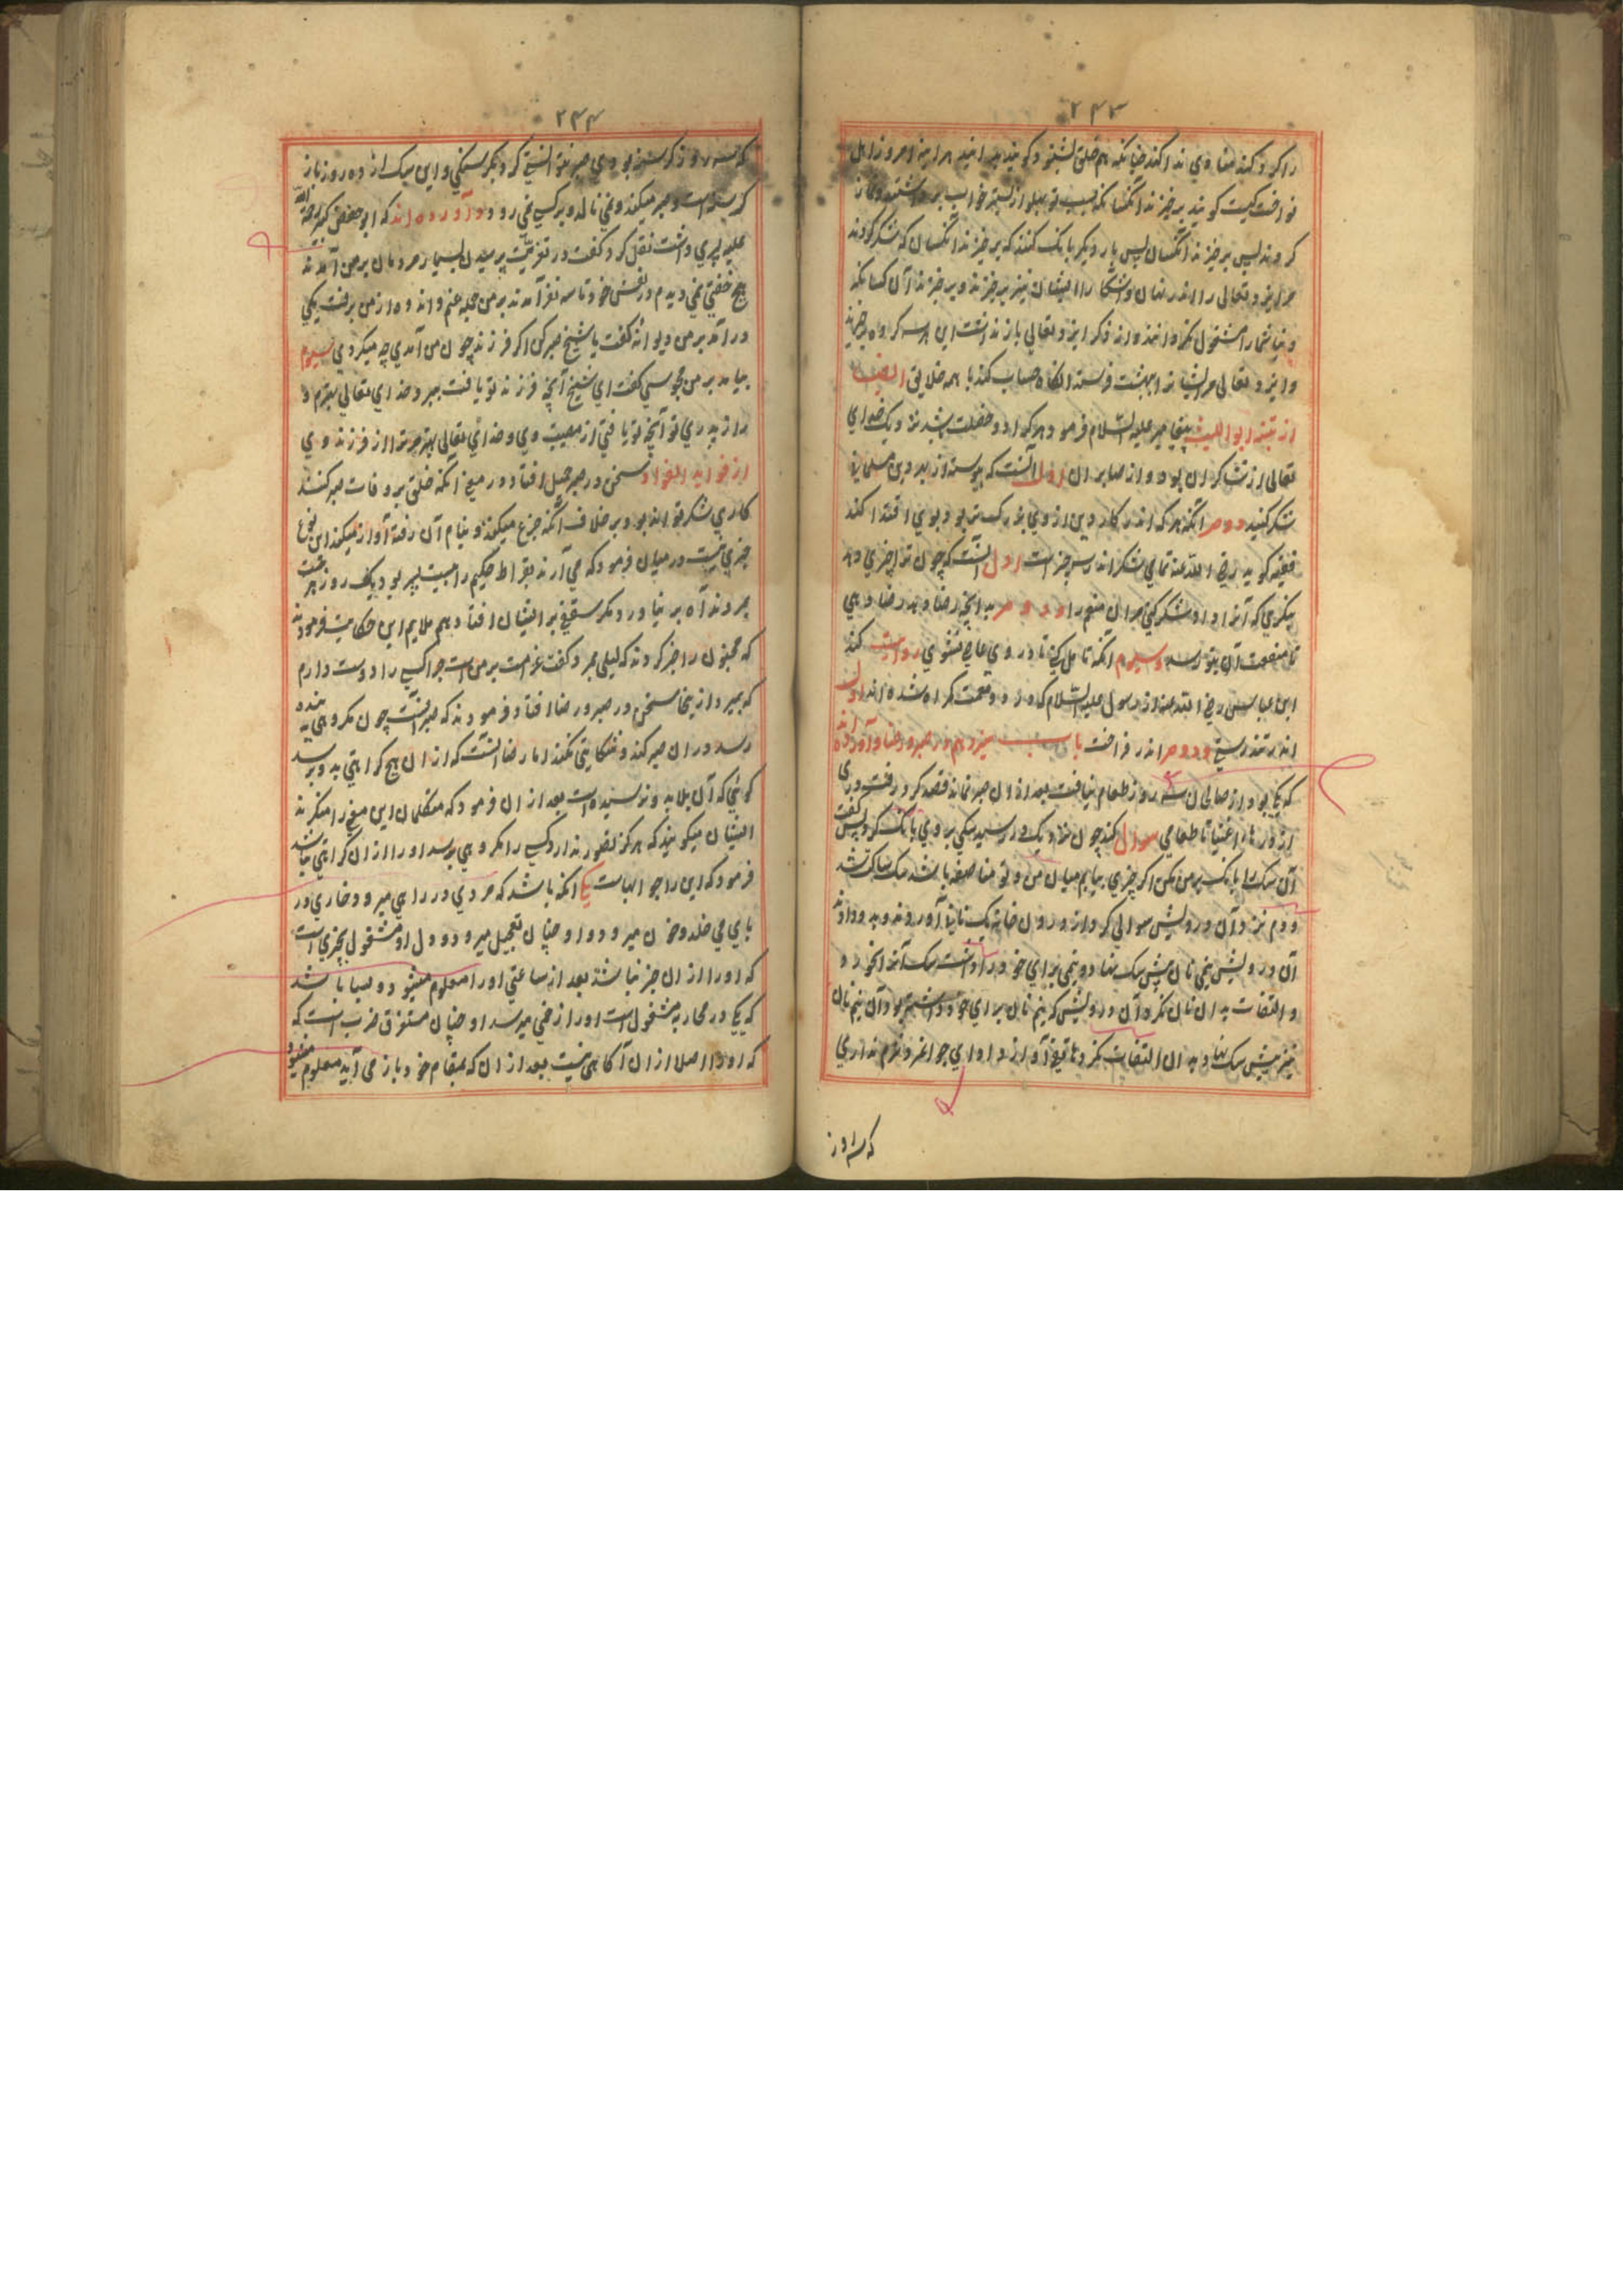 ۲۴۳
را گرد کند منادی ندا کند چنانکه هم خلق بشنود گویند بدانید هر آینه امروز اهل
نواخت کیست گویند برخیزند آنکسانکه پهلو از بستر خواب برداشته و نماز
کردند پس برخیزند آنکسان پس بار دیگر بانک کنند که برخیزند آنکسان که شکر کردند
مر ایزد تعالی را اندر ایشان نیز برخیزند و برخیزند آن کسانکه
دنیا شما را مشغول نکرد و از ذکر ایزد تعالی باز نداشت این هر سه گروه برخیزند
و ایزد تعالی مر ایشان را بهشت فرستد آنگاه حساب کند با همه خلایق ایضا
از تنبه ابو اللیث پیغامبر علیه السلام فرمود هر که او را دو خصلت نزد خدای
تعالی از شاکران بود و از صابران اول آنست که پیوسته از بهر دین مسلمانی
شکر کنید دوم آنکه هر که اندر کار دین از وی بزرگتر بود بوی اقتدا کند
فقیه گوید رضی الله عنه تمامی شکر اندر سه چیز است اول آنست که چون ترا چیزی دهد
بنگری که آن ترا داد شکر کنی مر آن منعم را و دوم بدانچه رضا دهد رضا دهی
تا منفعت آن بتو رسد و سیوم آنکه تا در وی عاصی نشوی روایت کند
ابن عباس رضی الله عنه از رسول علیه السلام که در دو نعمت گمراه شده اند اول
اندر تندرستی و دوم اندر فراغت باب سیزدهم در صبر و رضا و آورده اند
که یکی بود از صالحان سه روز طعام نیافت بعد از آن صبر نماند قصد کرد و رفت بر دری
از درهای اغنیا تا طعامی سوال کند چون نزدیک در رسید سگی بر وی بانک کرد پس گفت
آن سگ را بانک بر من مکن اگر چیزی بیابم میان من و تو مناصفه باشد سگ ساکت شد
و دم نزد و آن درویش سوالی کرد از درون خانه یک نان آوردند و بدو داد
آن درویش نیمی نان پیش سگ نهاد و نیمی برای خود داشت سگ آنرا نخورد
و التفات بدان نان نکرد آن درویش که نیم نان برای خود داشته بود آن نیم نان
نیز پیش سگ نهاد بدان التفات نکرد هاتفی آواز داد ای جوانمرد شرم نداری
که سه روز
۲۴۴
که سه روز گرسنه بودی صبر نتوانستی کرد بر گرسنگی و این سگ از ده روز باز
گرسنه است و صبر میکند و نمی نالد و بر کسی نمی رود و آورده اند که ابو حفص کبیر رحمة الله
علیه پسری داشت نقل کرد گفت در تعزیت پرسیدن بسیار مردمان بر من آمدند
هیچ خفتی نمی دیدم در نفس خود تا سه نفر آمدند بر من جمله غم و اندوه از من برفت یکی
در آمد بر من دیوانه گفت یا شیخ صبر کن اگر فرزند چون من آمدی چه میکردی سیوم
بیامد بر من مجوسی گفت ای شیخ آنچه فرزند تو یافت بمیرد خدای تعالی بهتر مرو
را از پدری تو آنچه تو یافتی از مصیبت وی و خدای تعالی بهتر مر ترا از فرزند وی
از فواید الفواد سخن در صبر جمیل افتاد در معنی آنکه خلقی بر وفات صبر کنند
کاری شگرف تواند بود بر خلاف آنکه جزع میکنند و بنام آن رفته آواز میکنند این نوع
چیزی نیست در میان فرمود که می آرند بقراط حکیم را بیست پسر بود یک روز هر بیست
بمردند آه بر نیاورد مگر سقفی بر ایشان افتاد هم ملایم این حکایت فرمودند
که مجنون را خبر کردند که لیلی بمرد گفت غرامت بر من است چرا کسی را دوست دارم
که بمیرد از ینجا سخن در صبر و رضا افتاد فرمودند که صبر آنست چون مکروهی به بنده
رسد در آن صبر کند و شکایتی نکند اما رضا آنست که از آن هیچ کراهتی بدو نرسد
گوئی که آن بلا بدو نرسیده است بعد از آن فرمود که متکلمان این معنی را منکرند
ایشان میگویند که هرگز تصور ندارد کسی را مکروهی برسد او را از آن کراهتی نباشد
فرمود که این را جوابهاست یکی آنکه باشد که مردی در راهی میرود و خاری در
پای می خلد و خون میرود و او چنان تعجیل میرود و دل او مشغول بچیزی است
که او را از آن خبر نباشد بعد از ساعتی او را معلوم میشود و بسیار باشد
که یکی در محاربه مشغول است او را زخمی میرسد او چنان مستغرق حرب است که
که او را اصلا از آن آگاهی نیست بعد از آن که بمقام خود باز می آید معلوم میشود